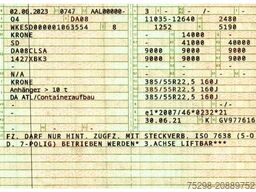 02.06.2023 0747 AAL00000- 3 - / -
Q4 DA08 11035-12640 2480
WKESD000001063554 8 1252 5190
KRONE - 14000 -
SD - 41000 -
DA08CLSA 9000 9000 9000
1427XBK3 9000 9000 9000
-
N/A
KRONE 385/55R22,5 160J
Anhänger > 10 t 385/55R22,5 160J
DA ATL/Containeraufbau 385/55R22,5 160J
- - / -
- e1*2007/46*0232*21
30.06.21 K GV977616
FZ. DARF NUR HINT. ZUGFZ. MIT STECKVERB. ISO 7638 (5-O
D. 7-POLIG) BETRIEBEN WERDEN* 3.ACHSE LIFTBAR***
75298-20889752